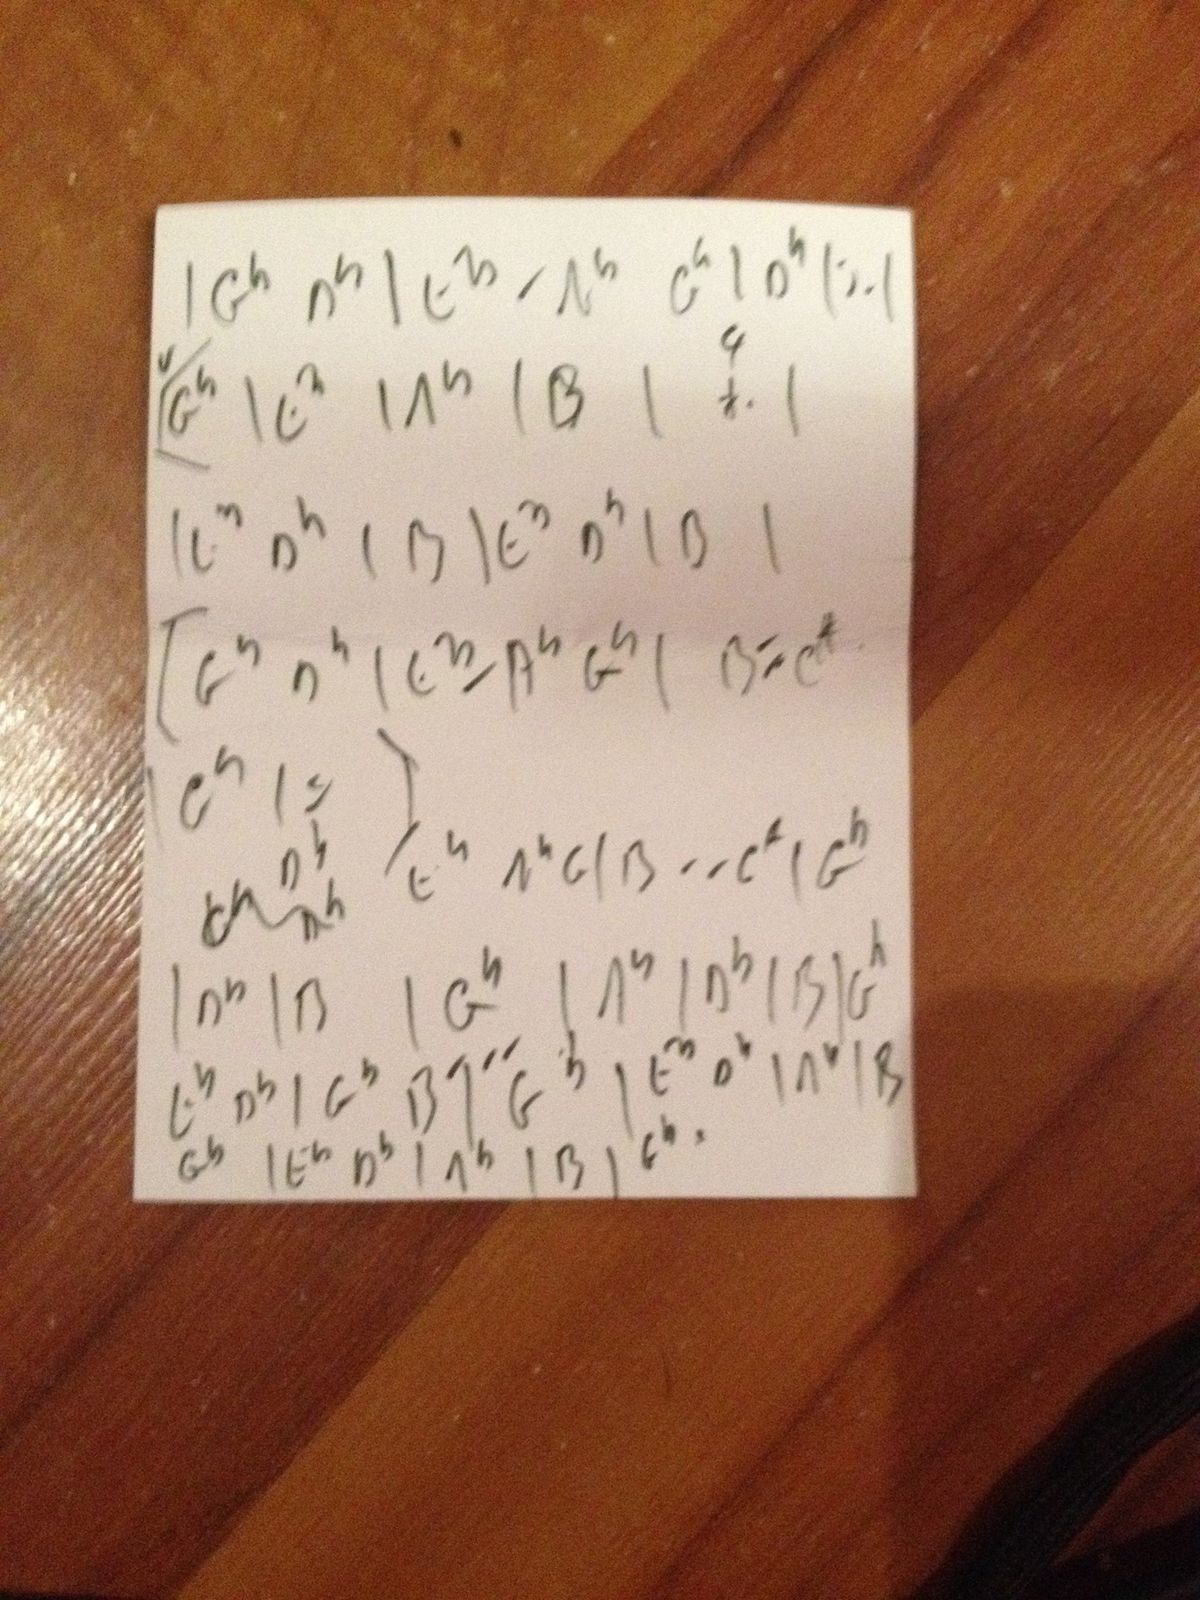 | Gʰ Dʰ | Eᵐ - Aʰ Gʰ | Dʰ | :. |
[Gʰ | Eᵐ | Aʰ | B | 4 |
| Eᵐ Dʰ | B | Eᵐ Dʰ | B |
[ Gʰ Dʰ | Eᵐ - Aʰ Gʰ | B = C#
| Cʰ | ]
Dʰ
Dʰ
Eʰ Aʰ G | B -- C# | Gʰ
| Dʰ | B | Gʰ | Aʰ | Dʰ | B | Gʰ
Eʰ Dʰ | Gʰ B | Gʰ | Eᵐ Dʰ | Aʰ | B
Gʰ | Eʰ Dʰ | Aʰ | B | Gʰ.